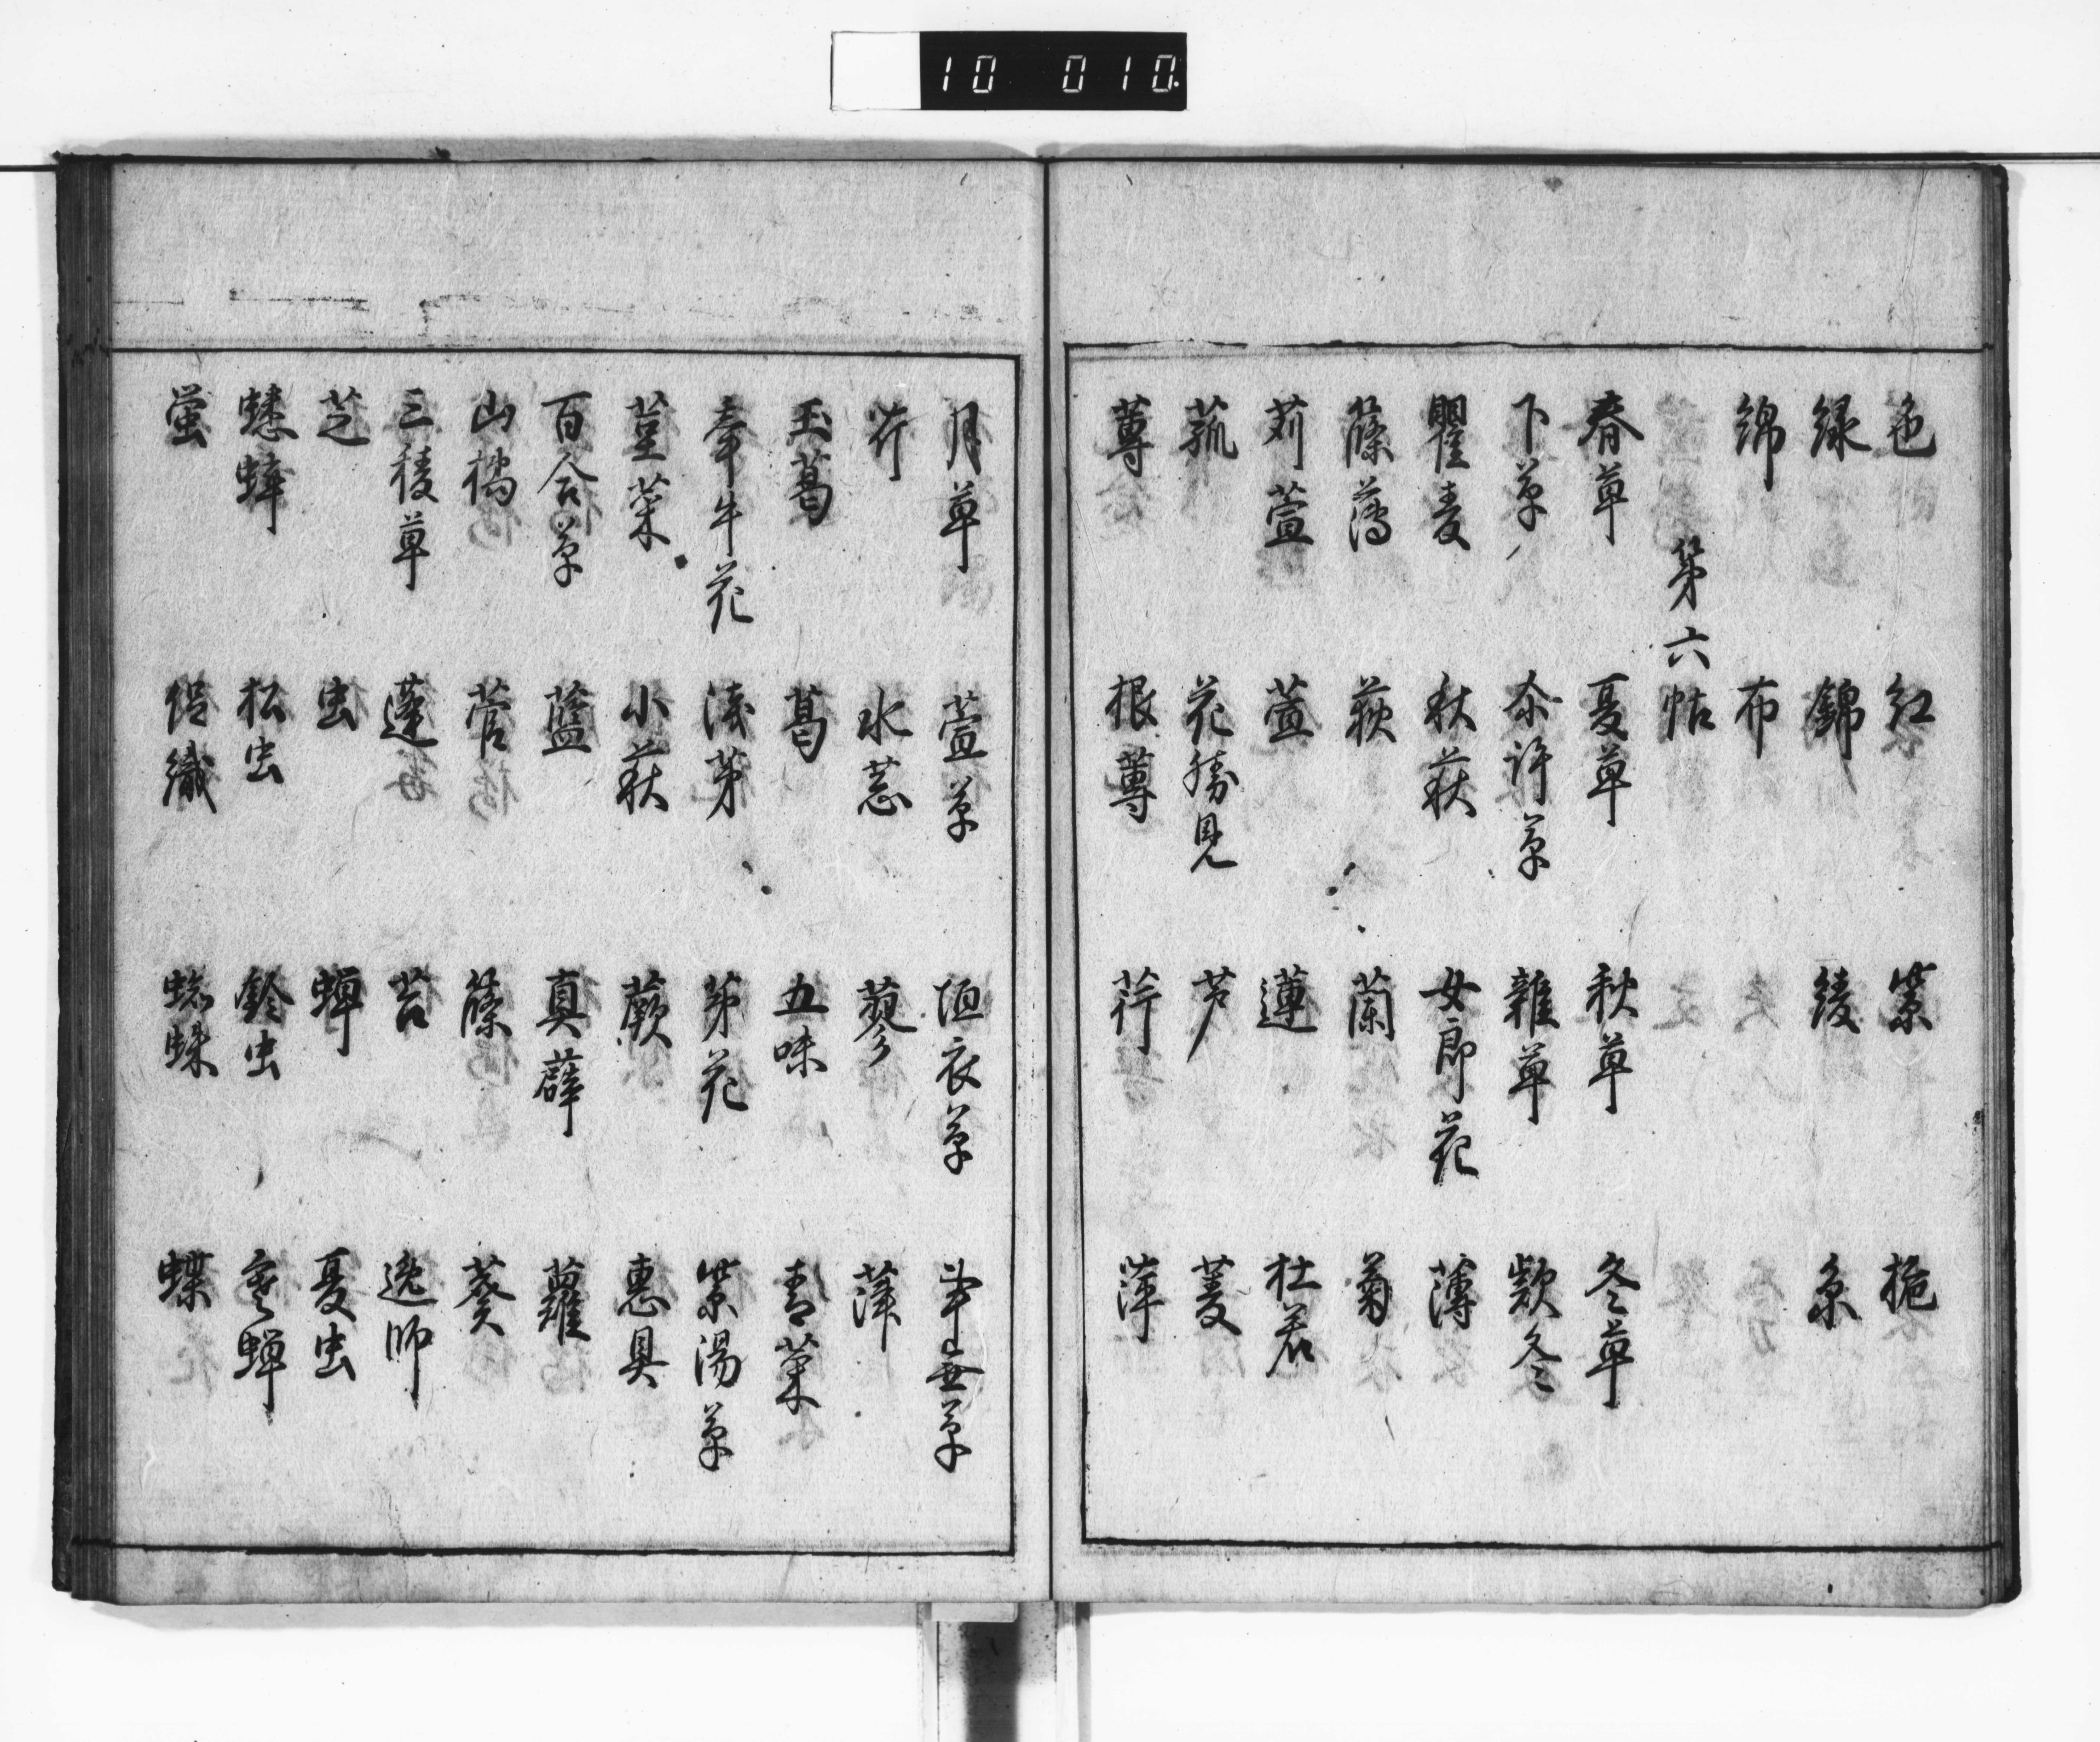 10 010
色 紅 紫 梔
緑 錦 綾 糸
綿 布
第六帖
春草 夏草 秋草 冬草
下草 尓許草 雜草 欵冬
瞿麦 秋萩 女郎花 薄
篠薄 荻 蘭 菊
苅萱 萱 蓮 杜若
菰 花勝見 芦 菱
蓴 根蓴 荇 萍
月草 萱草 垣衣草
芥 水葱 蓼 萍
玉葛 葛 五味 青菜
牽牛花 浅茅 茅花 紫湯草
菫菜 小萩 蕨 惠具
百合草 藍 真薜 蘿
山橘 菅 篠 葵
三稜草 蓬 苔 迯師
芝 虫 蝉 夏虫
蟋蟀 松虫 鈴虫
蛍 促織 蜘蛛 蝶